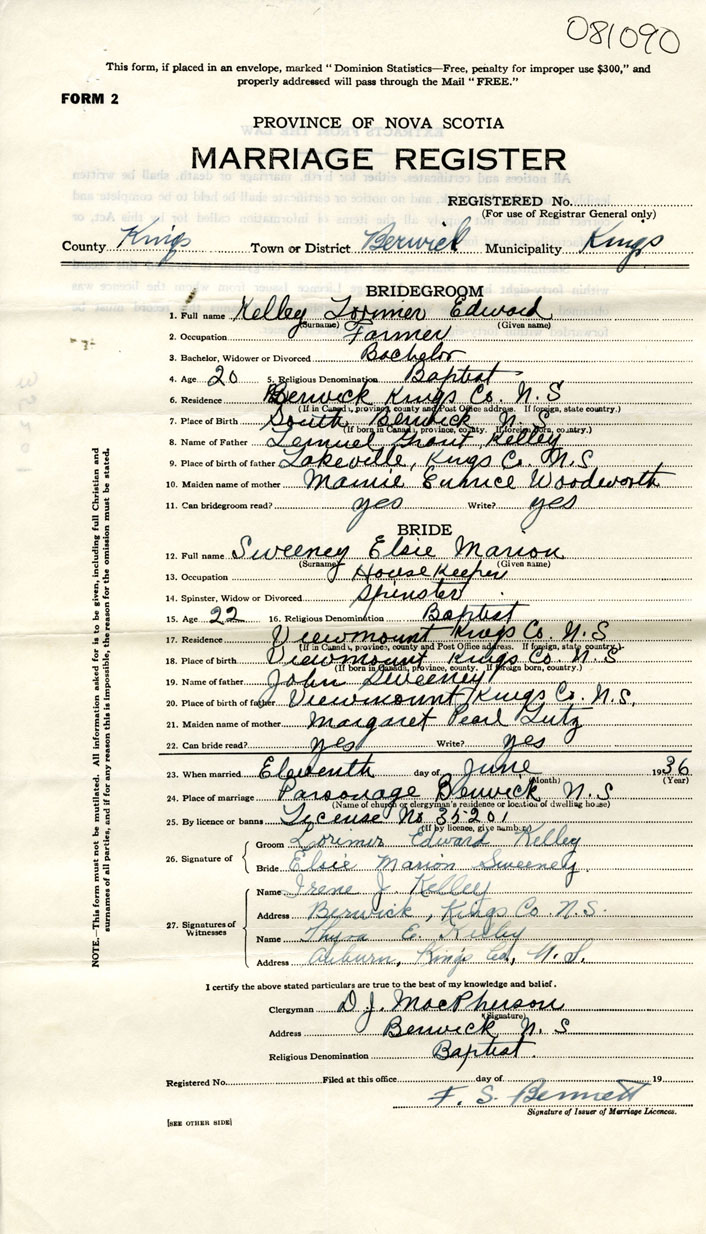 081090
This form, if placed in an envelope, marked "Dominion Statistics—Free, penalty for improper use $300," and
properly addressed will pass through the Mail "FREE."
FORM 2
PROVINCE OF NOVA SCOTIA
MARRIAGE REGISTER
REGISTERED No.
(For use of Registrar General only)
County Kings Town or District Berwick Municipality Kings
BRIDEGROOM
1. Full name Kelley Lorimer Edward
(Surname) (Given name)
2. Occupation Farmer
3. Bachelor, Widower or Divorced Bachelor
4. Age 20 5. Religious Denomination Baptist
6. Residence Berwick Kings Co. N.S
(If in Canada, province, county and Post Office address. If foreign, state country.)
7. Place of Birth South Berwick N.S
(If born in Canada, province, county. If foreign born, country.)
8. Name of Father Lemuel Grant Kelley
9. Place of birth of father Lakeville, Kings Co. N.S
10. Maiden name of mother Mamie Eunice Woodworth
11. Can bridegroom read? yes Write? yes
BRIDE
12. Full name Sweeney Elsie Marion
(Surname) (Given name)
13. Occupation HouseKeeper
14. Spinster, Widow or Divorced Spinster
15. Age 22 16. Religious Denomination Baptist
17. Residence Viewmount Kings Co. N.S
(If in Canada, province, county and Post Office address. If foreign, state country.)
18. Place of birth Viewmount Kings Co. N.S
(If born in Canada, province, county. If foreign born, country.)
19. Name of father John Sweeney
20. Place of birth of father Viewmount Kings Co. N.S.
21. Maiden name of mother Margaret Pearl Lutz
22. Can bride read? yes Write? yes
23. When married Eleventh day of June 1936
(Month) (Year)
24. Place of marriage Parsonage Berwick N.S
(Name of church or clergyman's residence or location of dwelling house)
25. By licence or banns License No 35201
(If by licence, give number)
26. Signature of
Groom Lorimer Edward Kelley
Bride Elsie Marion Sweeney.
27. Signatures of Witnesses
Name Irene J. Kelley
Address Berwick, Kings Co. N.S.
Name E. Kelley
Address Auburn, Kings Co., N.S.
I certify the above stated particulars are true to the best of my knowledge and belief.
Clergyman D.J. MacPherson
(Signature)
Address Berwick N.S
Religious Denomination Baptist.
Registered No. Filed at this office day of 19
F. S. Bennett
Signature of Issuer of Marriage Licences.
[SEE OTHER SIDE]
NOTE.—This form must not be mutilated. All information asked for is to be given, including full Christian and
surnames of all parties, and if for any reason this is impossible, the reason for the omission must be stated.